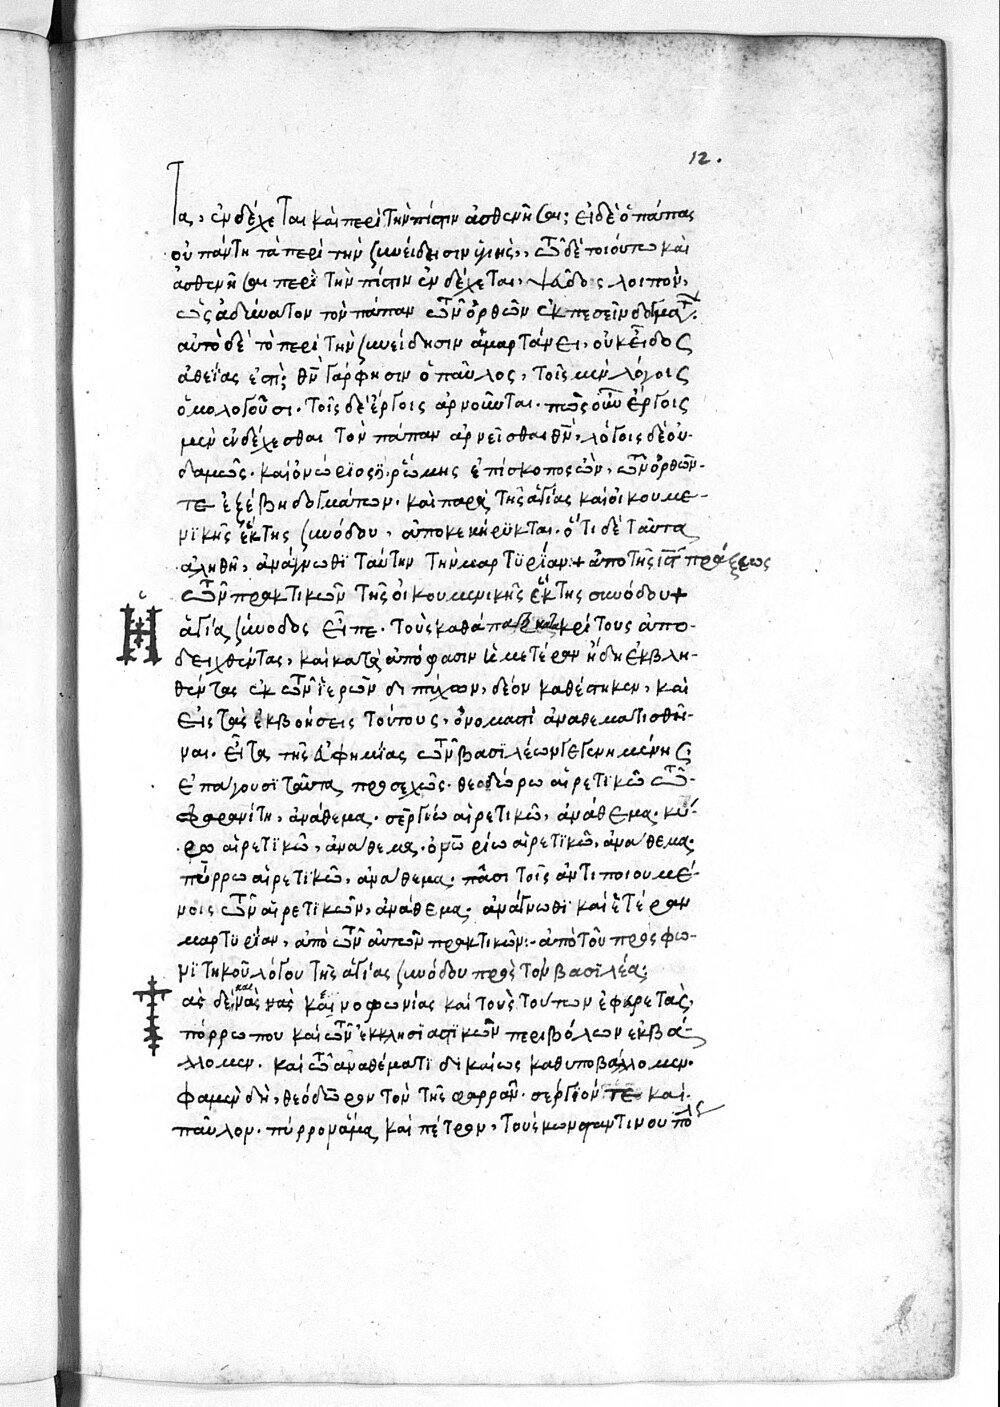 12.
τα, ἐνδέχεται καὶ περὶ τὴν πίστιν ἀσθενῆσαι; εἰ δὲ ὁ πάπας
οὐ πάντη τὰ περὶ τὴν συνείδησιν ὑγιὴς, τῶ δὲ τοιούτω καὶ
ἀσθενῆσαι περὶ τὴν πίστιν ἐνδέχεται, ψεῦδος λοιπὸν,
ὡς ἀδύνατον τὸν πάπαν τῶν ὀρθῶν ἐκπεσεῖν δογμάτων.
αὐτὸ δὲ τὸ περὶ τὴν συνείδησιν ἁμαρτάνει, οὐκ εἶδος
ἀθεΐας ἐστὶ; θν γάρ φησιν ὁ παῦλος, τοῖς μὲν λόγοις
ὁμολογοῦσι. τοῖς δὲ ἔργοις ἀρνοῦνται. πῶς οὖν ἔργοις
μὲν ἐνδέχεσθαι τὸν πάπαν ἀρνεῖσθαι θν, λόγοις δὲ οὐ-
δαμῶς. καὶ ὀνώριος ῥώμης ἐπίσκοπος ὢν, τῶν ὀρθῶν
τε ἐξέβη δογμάτων. καὶ παρὰ τῆς ἁγίας καὶ οἰκουμε-
νϊκῆς ἕκτης συνόδου, ἀποκεκήρϋκται. ὅτι δὲ ταῦτα
ἀληθῆ, ἀνάγνωθϊ ταύτην τὴν μαρτϋρίαν + ἀπὸ τῆς ιϛ πράξεως
τῶν πρακτικῶν τῆς οἰκουμενικῆς ἕκτης συνόδου +
Ἡ ἁγία σύνοδος εἶπε. τοὺς κατακρίτους ἀπο-
δειχθέντας, καὶ κατὰ ἀπόφασιν ἡμετέραν ἤδη ἐκβλη-
θέντας ἐκ τῶν ἱερῶν διπτύχων, δέον καθέστηκεν, καὶ
εἰς τὰς ἐκβοήσεις τούτους, ὀνομαστὶ ἀναθεματισθῆ-
ναι. εἶτα τῆς εὐφημίας τῶν βασϊλέων γεγενημένης
ἐπάγουσϊ ταῦτα προσεχῶς. θεοδώρω αἱρετϊκῶ τῶ
Φαρανίτη, ἀνάθεμα. σεργίω αἱρετικῶ, ἀνάθεμα. κύ-
ρω αἱρετϊκῶ, ἀνάθεμα. ὀνωρίω αἱρετϊκῶ, ἀνάθεμα.
πύρρω αἱρετϊκῶ, ἀνάθεμα. πᾶσι τοῖς ἀντιποιουμέ-
νοις τῶν αἱρετϊκῶν, ἀνάθεμα. ἀνάγνωθϊ καὶ ἑτέραν
μαρτϋρίαν, ἀπὸ τῶν αὐτῶν πρακτικῶν:- ἀπὸ τοῦ προσφω-
νϊτηκοῦ λόγου τῆς ἁγίας συνόδου πρὸς τὸν βασϊλέα;
ὰς δὲ καινοφωνίας καὶ τοὺς τούτων ἐφευρετὰς,
πόρρω που καὶ τῶν ἐκκλησϊαστϊκῶν περιβόλων ἐκβά-
λλομεν. καὶ τῶ ἀναθέματϊ δικαίως καθυποβάλλομεν.
φαμὲν δὴ, θεόδωρον τὸν τῆς φαράν. σέργϊον τε καὶ
παῦλον. πύρρον ἅμα καὶ πέτρον, τοὺς κωνσταντινουπόλεως